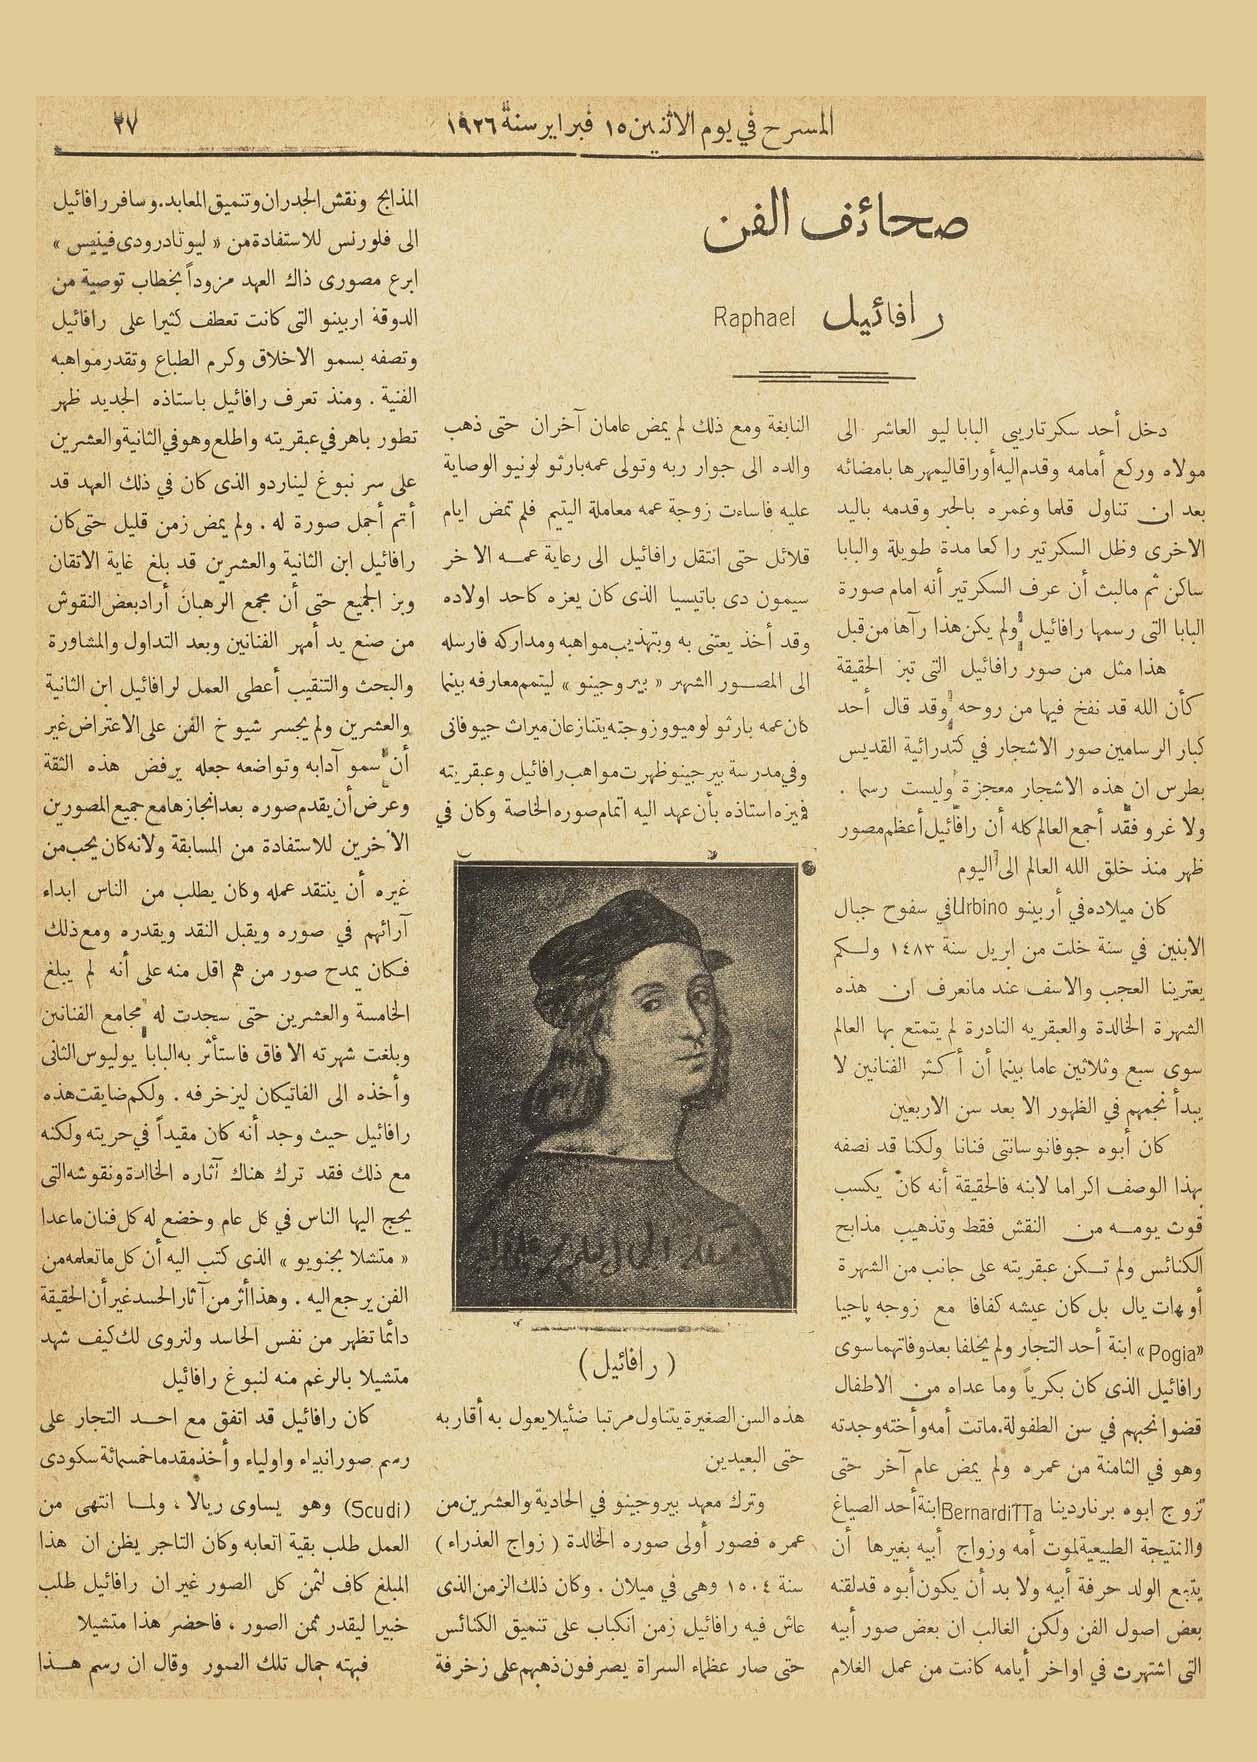 المسرح في يوم الاثنين ١٥ فبراير سنة ١٩٢٦
٢٧
صحائف الفن
رافائيل Raphael
دخل أحد سكرتاريي البابا ليو العاشر الى
مولاه وركع أمامه وقدم اليه أوراقا ليمهرها بامضائه
بعد ان تناول قلما وغمره بالحبر وقدمه باليد
الاخرى وظل السكرتير راكعا مدة طويلة والبابا
ساكن ثم مالبث أن عرف السكرتير أنه امام صورة
البابا التى رسمها رافائيل ولم يكن هذا رآها من قبل
هذا مثل من صور رافائيل التى تبز الحقيقة
كأن الله قد نفخ فيها من روحه وقد قال أحد
كبار الرسامين صور الاشجار في كتدرائية القديس
بطرس ان هذه الاشجار معجزة وليست رسما .
ولا غرو فقد أجمع العالم كله أن رافائيل أعظم مصور
ظهر منذ خلق الله العالم الى اليوم
كان ميلاده في أربينو Urbino في سفوح جبال
الابنين في سنة خلت من ابريل سنة ١٤٨٣ ولكم
يعترينا العجب والاسف عند مانعرف ان هذه
الشهرة الخالدة والعبقريه النادرة لم يتمتع بها العالم
سوى سبع وثلاثين عاما بينما أن أكثر الفنانين لا
يبدأ نجمهم في الظهور الا بعد سن الاربعين
كان أبوه جوفانوسانتى فنانا ولكنا قد نصفه
بهذا الوصف اكراما لابنه فالحقيقة أنه كان يكسب
قوت يومه من النقش فقط وتذهيب مذابح
الكنائس ولم تكن عبقريته على جانب من الشهرة
أو هات يال بل كان عيشه كفافا مع زوجه پاجيا
«Pogia» ابنة أحد التجار ولم يخلفا بعد وفاتهما سوى
رافائيل الذى كان بكرياً وما عداه من الاطفال
قضوا نحبهم في سن الطفولة. ماتت أمه وأخته وجدته
وهو في الثامنة من عمره ولم يمض عام آخر حتى
تزوج ابوه برناردينا BernardiTTa ابنة أحد الصياغ
والنتيجة الطبيعية لموت أمه وزواج أبيه بغيرها أن
يتبع الولد حرفة أبيه ولا بد أن يكون أبوه قد لقنه
بعض اصول الفن ولكن الغالب ان بعض صور أبيه
التى اشتهرت في اواخر أيامه كانت من عمل الغلام
النابغة ومع ذلك لم يمض عامان آخران حتى ذهب
والده الى جوار ربه وتولى عمه بارثو لونيو الوصاية
عليه فاساءت زوجة عمه معاملة اليتيم فلم تمض ايام
قلائل حتى انتقل رافائيل الى رعاية عمه الاخر
سيمون دى باتيسيا الذى كان يعزه كاحد اولاده
وقد أخذ يعتنى به وبتهذيب مواهبه ومداركه فارسله
الى المصور الشهر « بيروجينو » ليتمم معارفه بينما
كان عمه بارثو لوميو وزوجته يتنازعان ميراث جيوفانى
وفي مدرسة بيرجينو ظهرت مواهب رافائيل وعبقريته
فميزه استاذه بأن عهد اليه اتمام صوره الخاصة وكان في
( رافائيل )
هذه السن الصغيرة يتناول مرتبا ضئيلا يعول به أقاربه
حتى البعيدين
وترك معهد بيروجينو في الحادية والعشرين من
عمره فصور أولى صوره الخالدة ( زواج العذراء )
سنة ١٥٠٤ وهى في ميلان . وكان ذلك الزمن الذى
عاش فيه رافائيل زمن انكباب على تنميق الكنائس
حتى صار عظماء السراة يصرفون ذهبهم على زخرفة
المذابح ونقش الجدران وتنميق المعابد. وسافر رافائيل
الى فلورنس للاستفادة من « ليوناردو دى فينيس »
ابرع مصورى ذاك العهد مزوداً بخطاب توصية من
الدوقة اربينو التى كانت تعطف كثيرا على رافائيل
وتصفه بسمو الاخلاق وكرم الطباع وتقدر مواهبه
الفنية . ومنذ تعرف رافائيل باستاذه الجديد ظهر
تطور باهر في عبقريته واطلع وهو في الثانية والعشرين
على سر نبوغ ليناردو الذى كان في ذلك العهد قد
أتم أجمل صورة له . ولم يمض زمن قليل حتى كان
رافائيل ابن الثانية والعشرين قد بلغ غاية الاتقان
وبز الجميع حتى أن مجمع الرهبان أراد بعض النقوش
من صنع يد أمهر الفنانين وبعد التداول والمشاورة
والبحث والتنقيب أعطى العمل لرافائيل ابن الثانية
والعشرين ولم يجسر شيوخ الفن على الاعتراض غير
أن سمو آدابه وتواضعه جعله يرفض هذه الثقة
وعرض أن يقدم صوره بعد انجازها مع جميع المصورين
الآخرين للاستفادة من المسابقة ولانه كان يحب من
غيره أن ينتقد عمله وكان يطلب من الناس ابداء
آرائهم في صوره ويقبل النقد ويقدره ومع ذلك
فكان يمدح صور من هم اقل منه على أنه لم يبلغ
الخامسة والعشرين حتى سجدت له مجامع الفنانين
وبلغت شهرته الافاق فاستأثر به البابا يوليوس الثانى
وأخذه الى الفاتيكان ليزخرفه . ولكم ضايقت هذه
رافائيل حيث وجد أنه كان مقيداً في حريته ولكنه
مع ذلك فقد ترك هناك آثاره الخالدة ونقوشه التى
يحج اليها الناس في كل عام وخضع له كل فنان ماعدا
« متشلا بجنويو » الذى كتب اليه أن كل ما تعلمه من
الفن يرجع اليه . وهذا أثر من آثار الحسد غير أن الحقيقة
دائما تظهر من نفس الحاسد ولنروى لك كيف شهد
متشيلا بالرغم منه لنبوغ رافائيل
كان رافائيل قد اتفق مع احد التجار على
رسم صور انبياء واولياء وأخذ مقدما خمسمائة سكودى
(Scudi) وهو يساوى ريالا ، ولما انتهى من
العمل طلب بقية اتعابه وكان التاجر يظن ان هذا
المبلغ كاف لثمن كل الصور غير ان رافائيل طلب
خبيرا ليقدر ثمن الصور ، فاحضر هذا متشيلا
فبهته جمال تلك الصور وقال ان رسم هذا